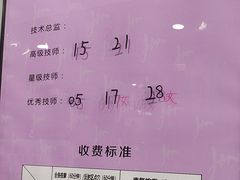 技术总监:
高级技师: 15 21
星级技师:
优秀技师: 05 17 28
收费标准